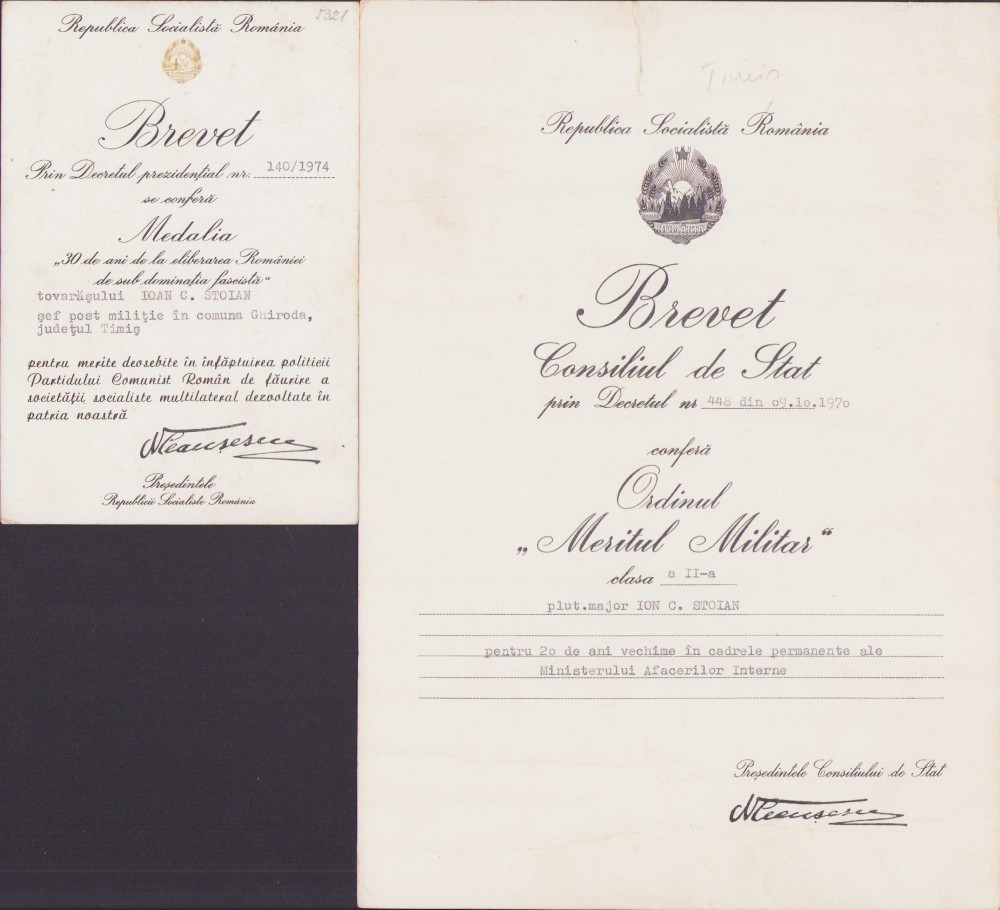 5321
Republica Socialistă România
Brevet
Prin Decretul prezidențial nr. 140/1974
se conferă
Medalia
„30 de ani de la eliberarea României
de sub dominația fascistă“
tovarăşului IOAN C. STOIAN
şef post miliţie în comuna Ghiroda,
judeţul Timiş
pentru merite deosebite în înfăptuirea politicii
Partidului Comunist Român de făurire a
societății socialiste multilateral dezvoltate în
patria noastră
NCeaușescu
Președintele
Republicii Socialiste România
Timiș
Republica Socialistă România
Brevet
Consiliul de Stat
prin Decretul nr 448 din o9.1o.197o
conferă
Ordinul
„Meritul Militar“
clasa a II-a
plut.major ION C. STOIAN
pentru 2o de ani vechime în cadrele permanente ale
Ministerului Afacerilor Interne
Președintele Consiliului de Stat
NCeaușescu